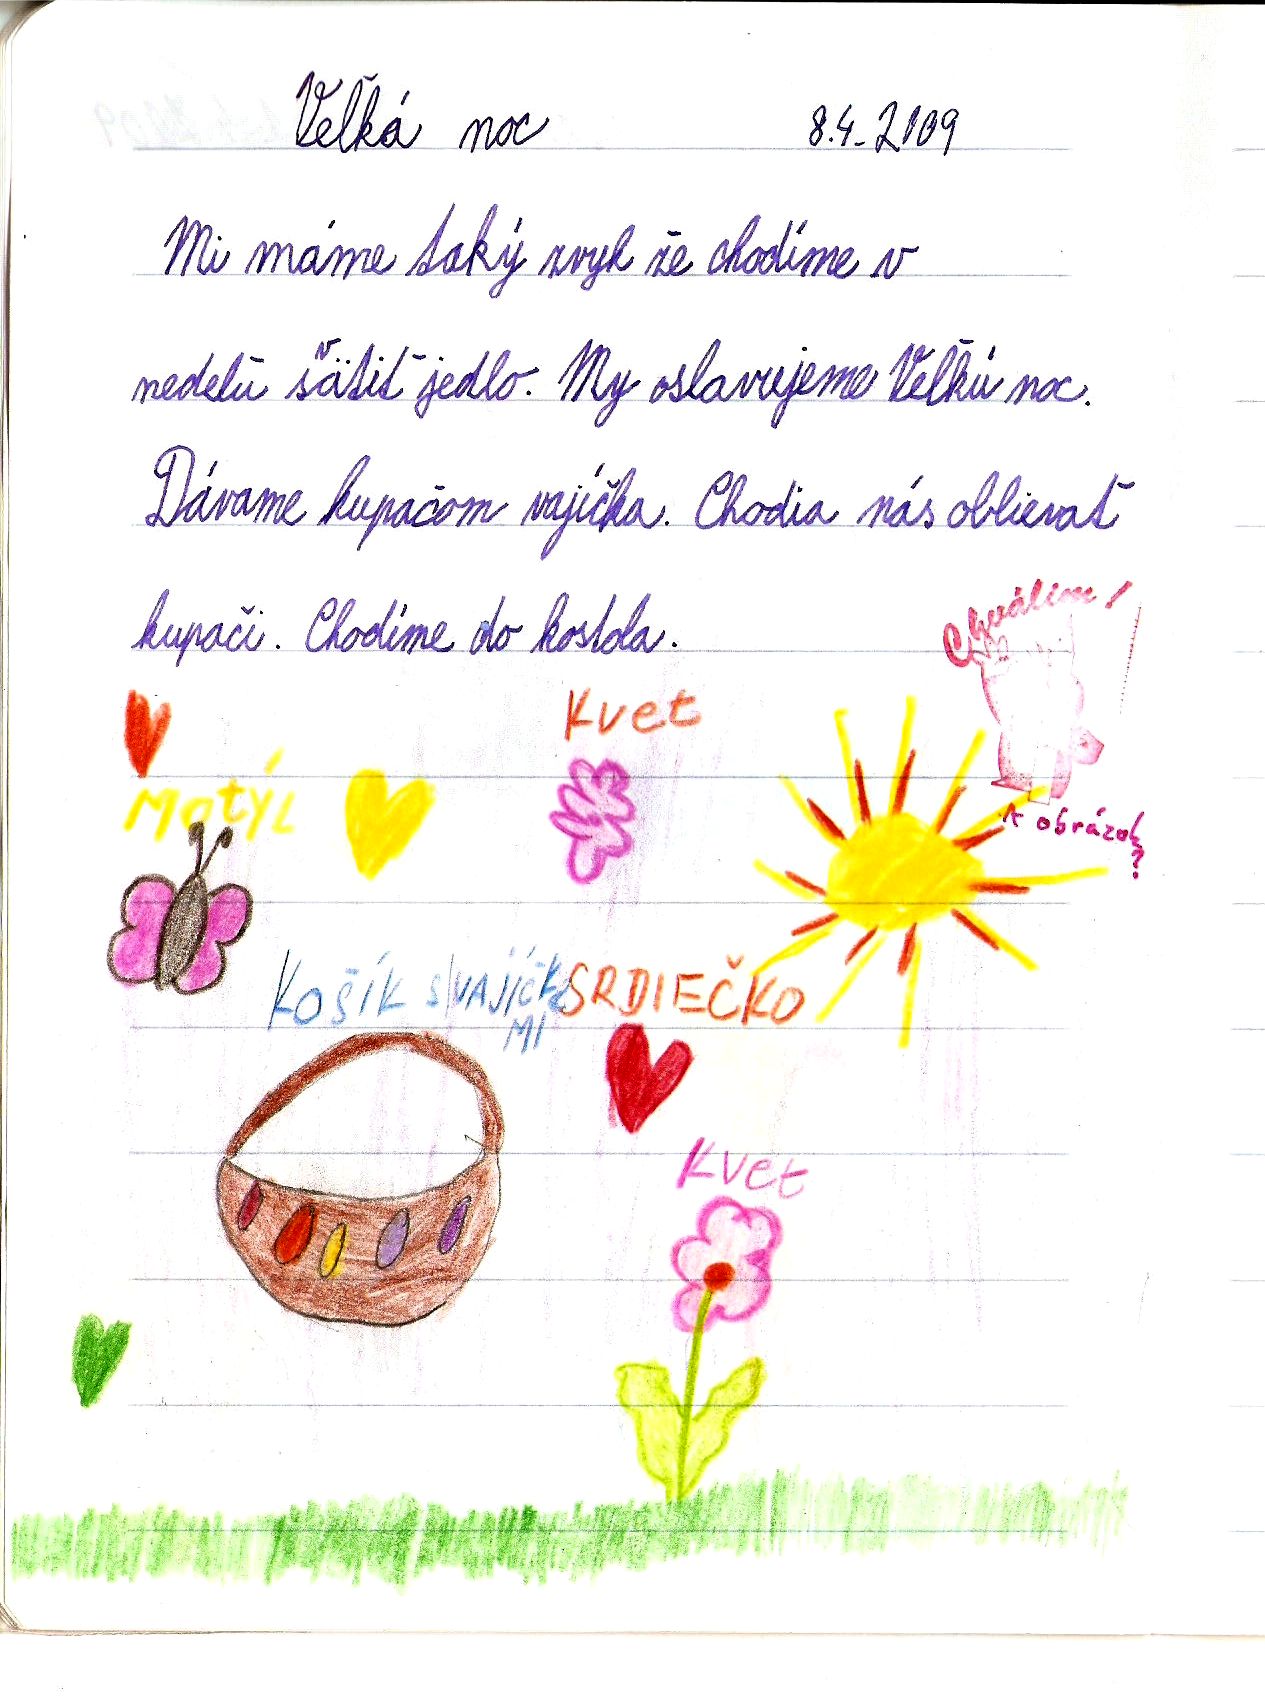 Veľká noc 8.4.2009
Mi máme taký zvyk že chodíme v
nedeľu sväťiť jedlo. My oslavujeme Veľkú noc.
Dávame kupačom vajíčka. Chodia nás oblievať
kupači. Chodíme do kostola.
Chválim!
A obrázok
?
Kvet
Motýľ
Košík s vajíčka
mi
SRDIEČKO
Kvet